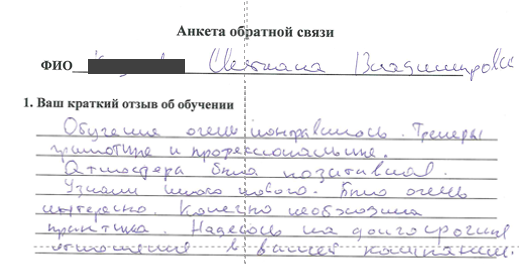 Анкета обратной связи
ФИО Светлана Владимировна
1. Ваш краткий отзыв об обучении
Обучение очень понравилось. Тренеры
грамотные и профессиональные.
Атмосфера была позитивная.
Узнали много нового. Было очень
интересно. Конечно необходима
практика. Надеюсь на долгосрочные
отношения с вашей компанией.